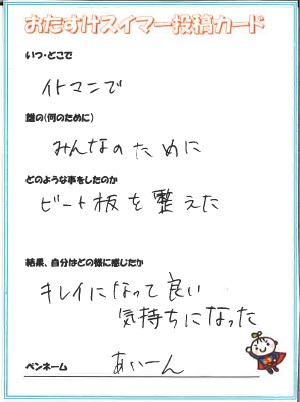 おたすけスイマー投稿カード
いつ・どこで
イトマンで
誰の(何のために)
みんなのために
どのような事をしたのか
ビート板を整えた
結果、自分はどの様に感じたか
キレイになって良い
気持ちになった
ペンネーム
あいーん